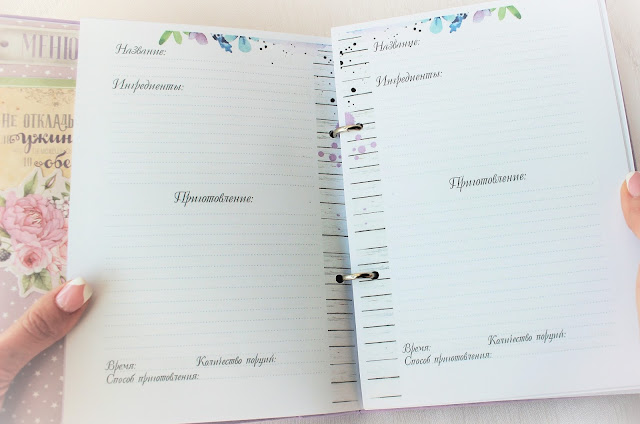 МЕНЮ
НЕ ОТКЛАДЫ
ужин
по
обе
Название:
Ингредиенты:
Приготовление:
Время:
Количество порций:
Способ приготовления:
Название:
Ингредиенты:
Приготовление:
Количество порций:
Время:
Способ приготовления: